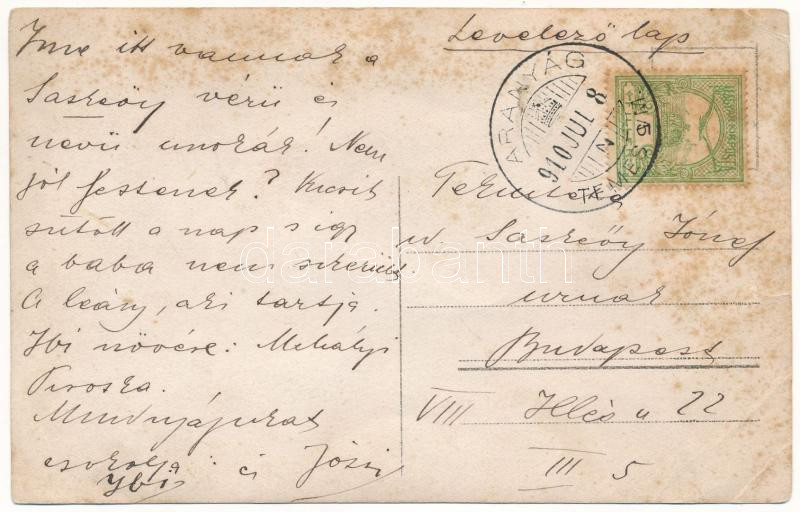 Levelező lap
Ime itt vannak a
Saskeőy vérü és
nevü unokák! Nem
jól festenek? Kicsit
sütött a nap s igy
a baba nem sikerült.
A leány, aki tartja
Ibi növére: Mihályi
Piroska.
Mindnyájukat
csokolja: és Józsi
Ybi
ARANYÁG
910 JUL 8
TEMES
N
Saskeőy József
urnak
Budapest
VIII Illés u 22
III 5
darabanth